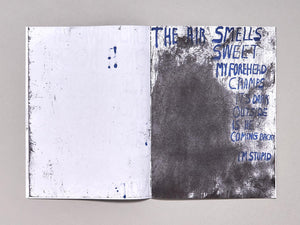 THE AIR SMELLS
SWEET
MY FOREHEAD
CRAMPS
DARK
OUTSIDE
IS HE
COMING BACK
I'M STUPID